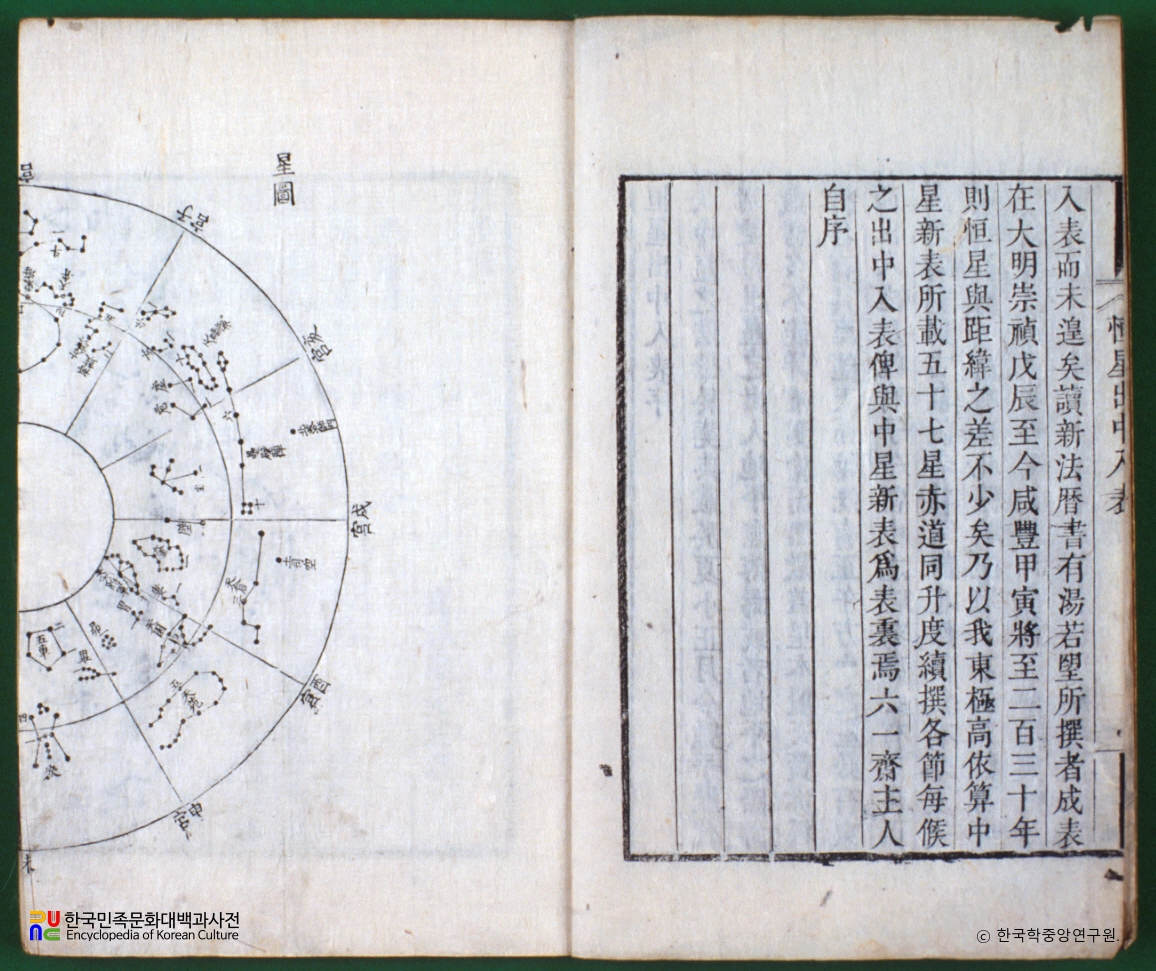 恒星出中入表
入表而未遑矣讀新法曆書有湯若望所撰者成表
在大明崇禎戊辰至今咸豐甲寅將至二百三十年
則恒星與距緯之差不少矣乃以我東極高依算中
星新表所載五十七星赤道同升度續撰各節每候
之出中入表俾與中星新表爲表裏焉六一齋主人
自序
星圖
宮子
亥宮
戌宮
酉宮
申宮
未
虛
危
六
十
二
五車
昴
畢
婁
胃
天倉
奎
壁
四
한국민족문화대백과사전
Encyclopedia of Korean Culture
ⓒ 한국학중앙연구원.